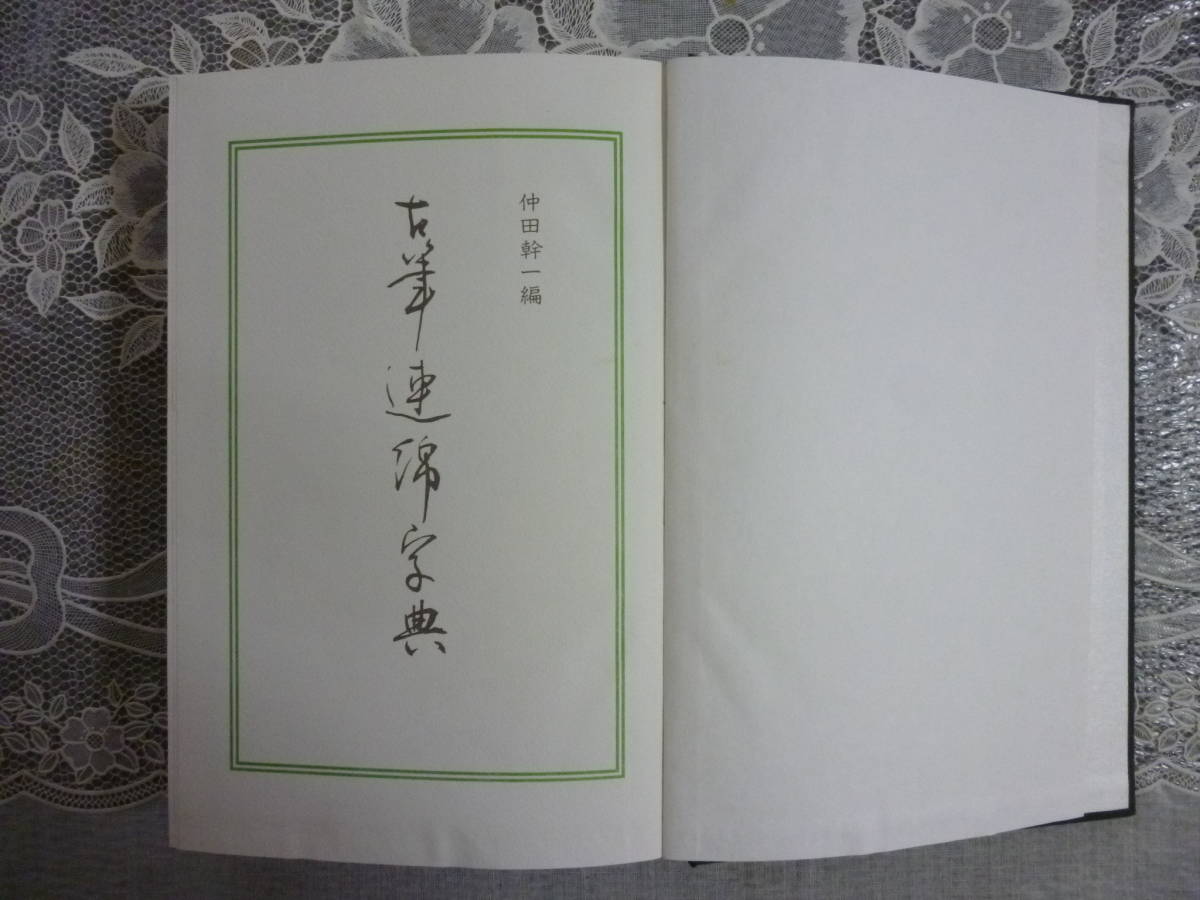 仲田幹一編
古筆連綿字典